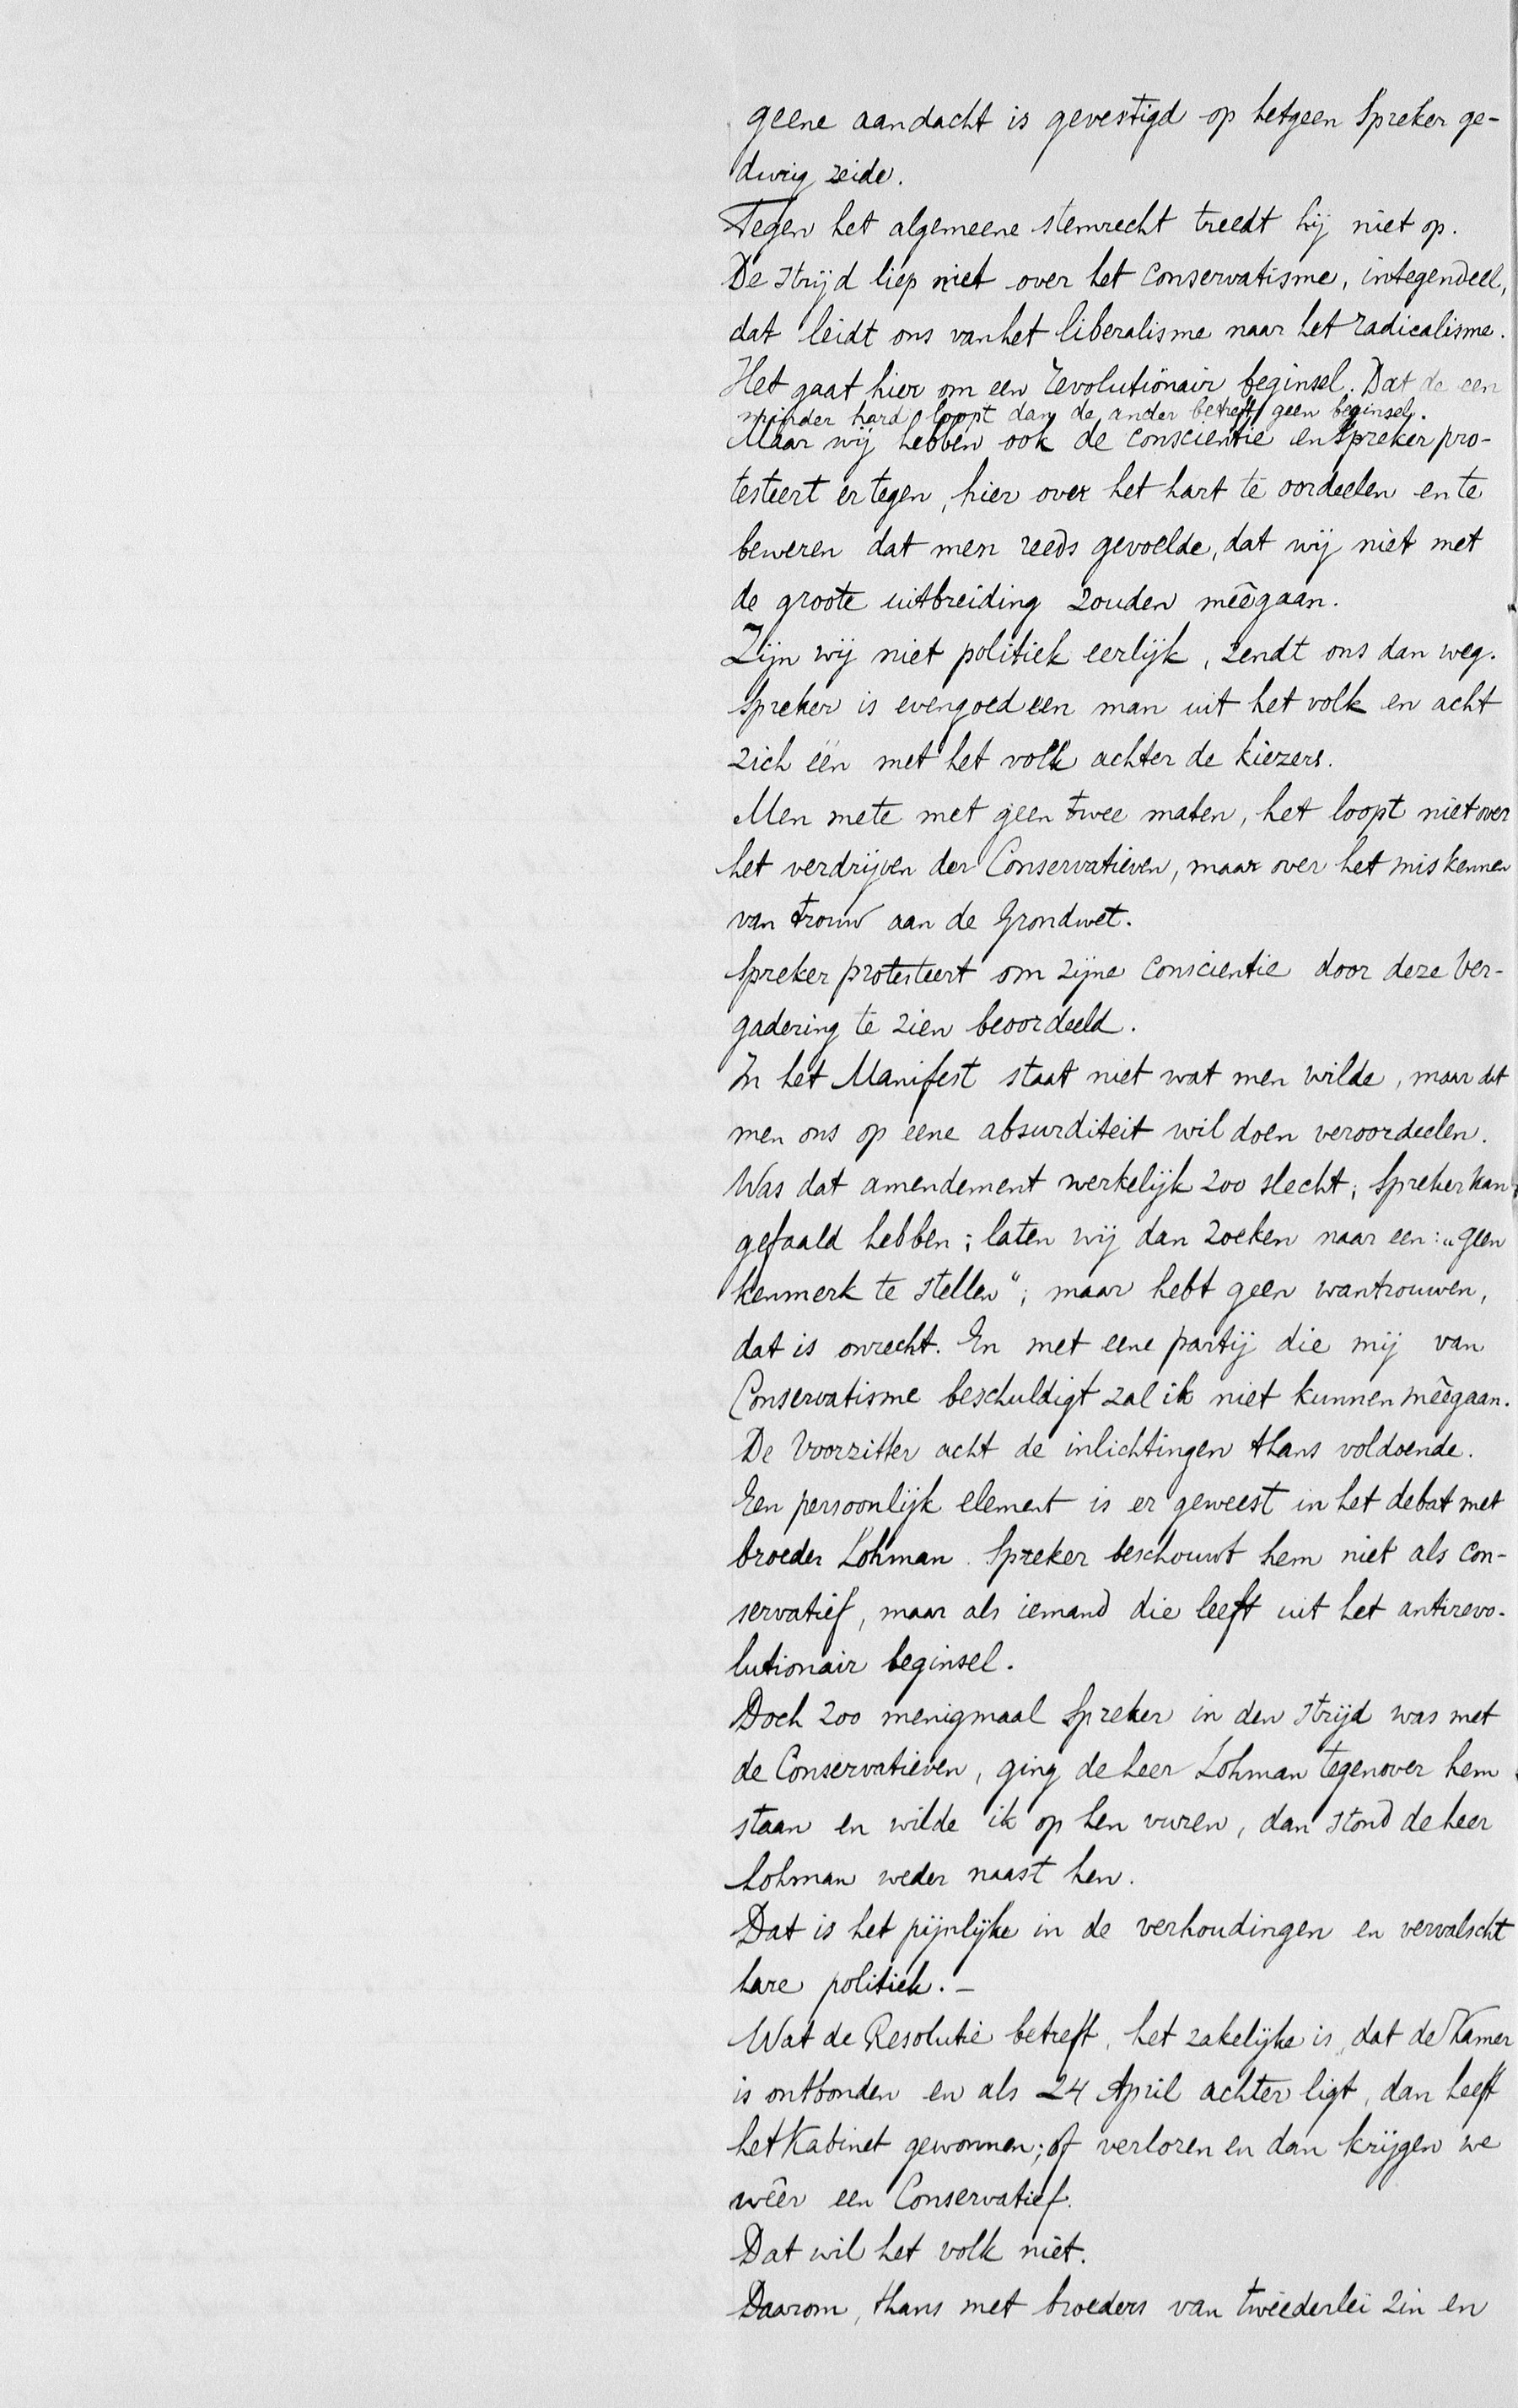 geene aandacht is gevestigd op hetgeen Spreker ge-
durig zeide.
Tegen het algemeene stemrecht treedt hij niet op.
De strijd liep niet over het conservatisme, integendeel,
dat leidt ons van het liberalisme naar het radicalisme.
Het gaat hier om een revolutionair beginsel. Dat de een
minder hard loopt dan de ander betreft geen beginsel.
Maar wij hebben ook de conscientie en Spreker pro-
testeert er tegen, hier over het hart te oordeelen en te
beweren dat men reeds gevoelde, dat wij niet met
de groote uitbreiding zouden meêgaan.
Zijn wij niet politiek eerlijk, zendt ons dan weg.
Spreker is evengoed een man uit het volk en acht
zich één met het volk achter de kiezers.
Men mete met geen twee maten, het loopt niet over
het verdrijven der Conservatieven, maar over het miskennen
van trouw aan de Grondwet.
Spreker protesteert om zijne conscientie door deze Ver-
gadering te zien beoordeeld.
In het Manifest staat niet wat men wilde, maar dat
men ons op eene absurditeit wil doen veroordeelen.
Was dat amendement werkelijk zoo slecht; Spreker kan
gefaald hebben; laten wij dan zoeken naar een: „geen
kenmerk te stellen"; maar hebt geen wantrouwen,
dat is onrecht. En met eene partij die mij van
Conservatisme beschuldigt zal ik niet kunnen meêgaan.
De Voorzitter acht de inlichtingen thans voldoende.
Een persoonlijk element is er geweest in het debat met
broeder Lohman. Spreker beschouwt hem niet als con-
servatief, maar als iemand die leeft uit het antirevo-
lutionair beginsel.
Doch zoo menigmaal Spreker in den strijd was met
de Conservatieven, ging de heer Lohman tegenover hem
staan en wilde ik op hen vuren, dan stond de heer
Lohman weder naast hen.
Dat is het pijnlijke in de verhoudingen en vervalscht
hare politiek. -
Wat de Resolutie betreft, het zakelijke is, dat de Kamer
is ontbonden en als 24 April achter ligt, dan heeft
het Kabinet gewonnen; of verloren en dan krijgen we
wêer een Conservatief.
Dat wil het volk niet.
Daarom, thans met broeders van tweederlei zin en